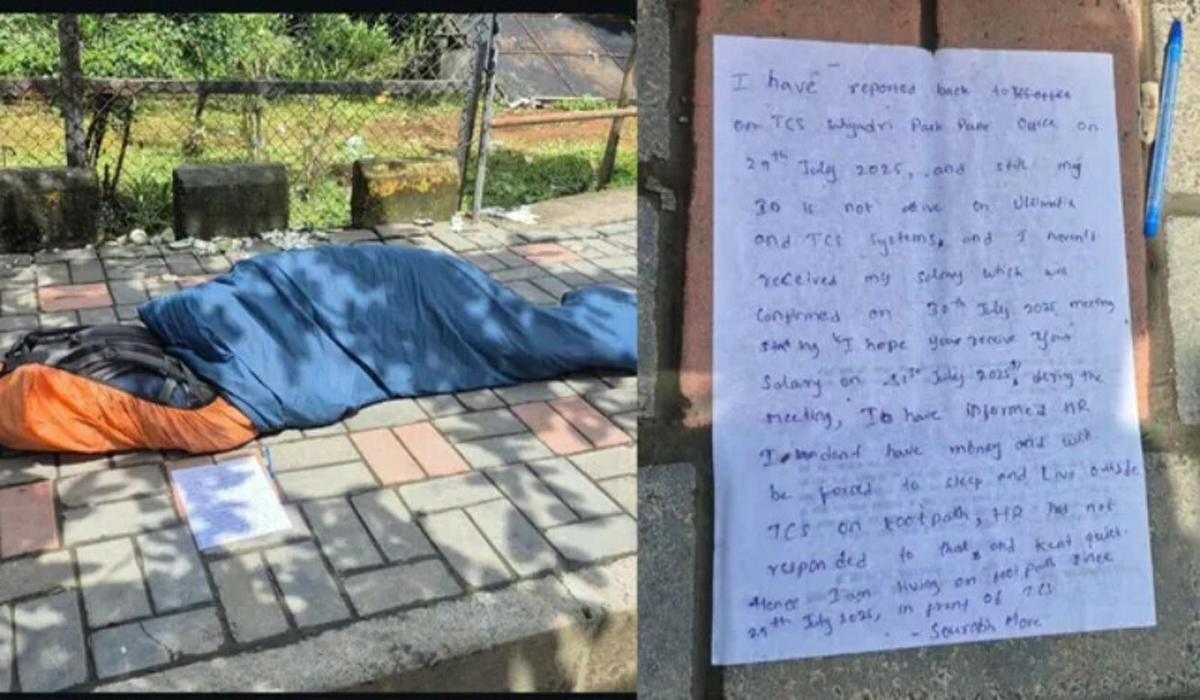 I have reported back to
on TCS Sahyadri Park Pune Office on
29th July 2025, and still my
ID is not active on Ultimatix
and TCS systems, and I haven't
received my salary which was
confirmed on 30th July 2025 meeting
stating "I hope you receive your
salary on 31st July 2025", during the
meeting, I have informed HR
I dont have money and will
be forced to sleep and Live outside
TCS on footpath, HR has not
responded to that, and kept quiet.
Hence I am living on footpath since
29th July 2025, in front of TCS
- Saurabh More